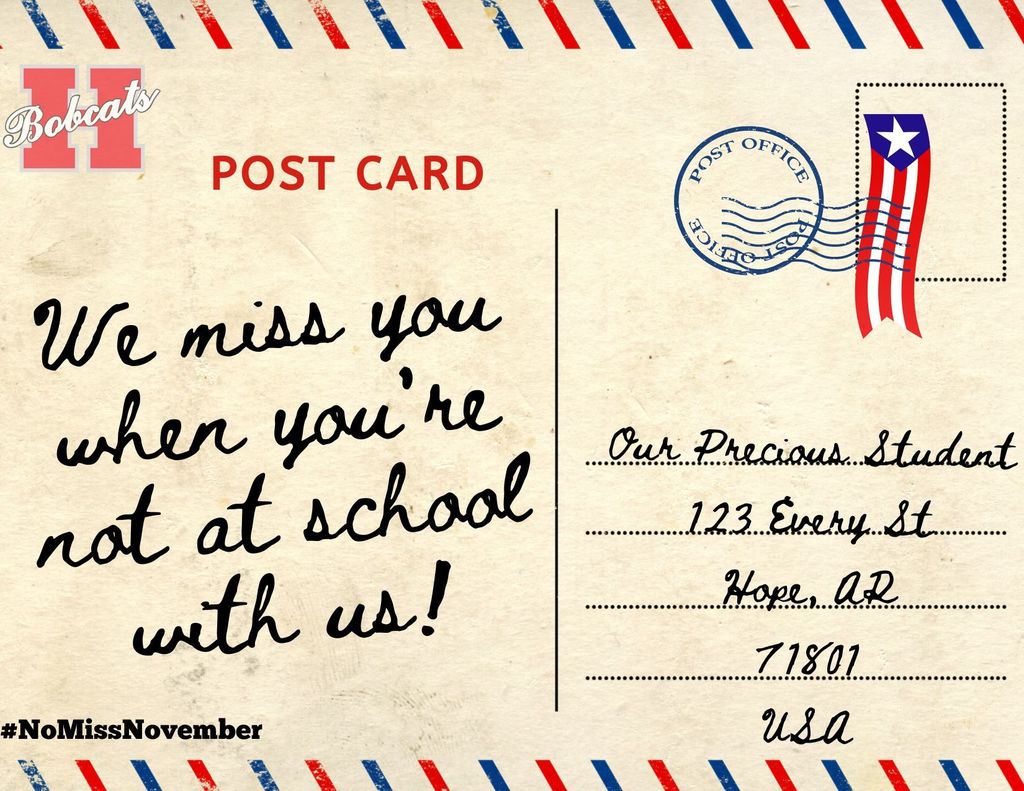 H
Bobcats
POST CARD
POST OFFICE
POST OFFICE
We miss you
when you're
not at school
with us!
Our Precious Student
123 Every St
Hope, AR
71801
USA
#NoMissNovember